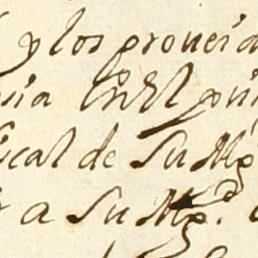 y los proueid
sia En El pu
ical de Su Mg
a Su Mg.d